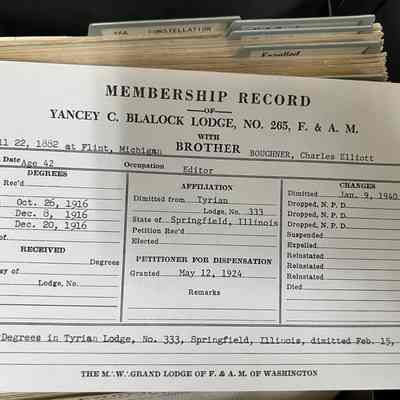 CONSTELLATION
Expelled
MEMBERSHIP RECORD
OF
YANCEY C. BLALOCK LODGE, NO. 265, F. & A. M.
WITH
22, 1882 at Flint, Michigan BROTHER BOUGHNER, Charles Elliott
Date Age 42 Occupation Editor
DEGREES
Rec'd
Oct. 26, 1916
Dec. 8, 1916
Dec. 20, 1916
RECEIVED
Degrees
of Lodge, No.
AFFILIATION
Dimitted from Tyrian
Lodge, No. 333
State of Springfield, Illinois
Petition Rec'd
Elected
PETITIONER FOR DISPENSATION
Granted May 12, 1924
Remarks
CHANGES
Dimitted Jan. 9, 1940
Dropped, N. P. D.
Dropped, N. P. D.
Suspended
Expelled
Reinstated
Reinstated
Reinstated
Died
Degrees in Tyrian Lodge, No. 333, Springfield, Illinois, dimitted Feb. 15,
THE M∴W∴GRAND LODGE OF F. & A. M. OF WASHINGTON